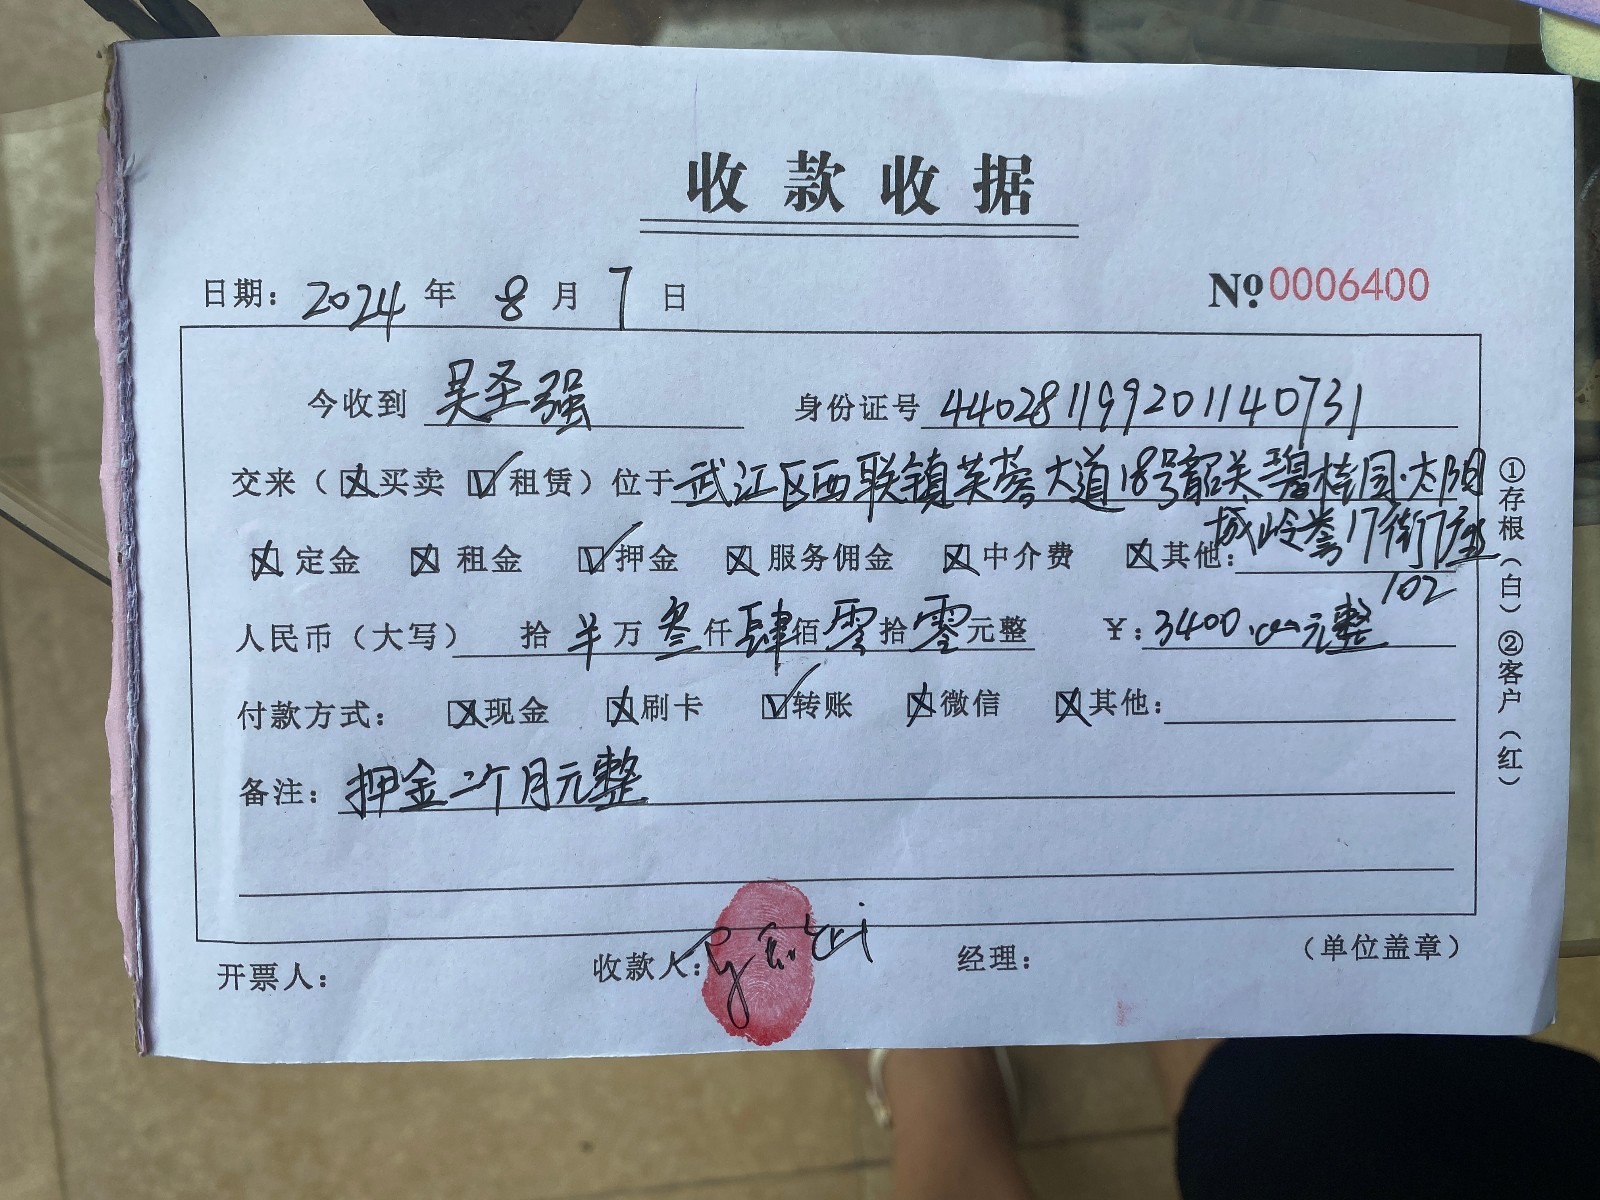 收款收据
日期：2024年8月7日 №0006400
今收到 吴圣强 身份证号 440281199201140731
交来（☒买卖 ☑租赁）位于 武江区西联镇芙蓉大道18号韶关碧桂园·太阳
城岭誉17街7座
102
☒定金 ☒租金 ☑押金 ☒服务佣金 ☒中介费 ☒其他：
人民币（大写） 拾 万叁仟肆佰零拾零元整 ￥：3400.00元整
付款方式： ☒现金 ☒刷卡 ☑转账 ☒微信 ☒其他：
备注：押金二个月元整
开票人： 收款人： 经理： （单位盖章）
①存根（白）②客户（红）